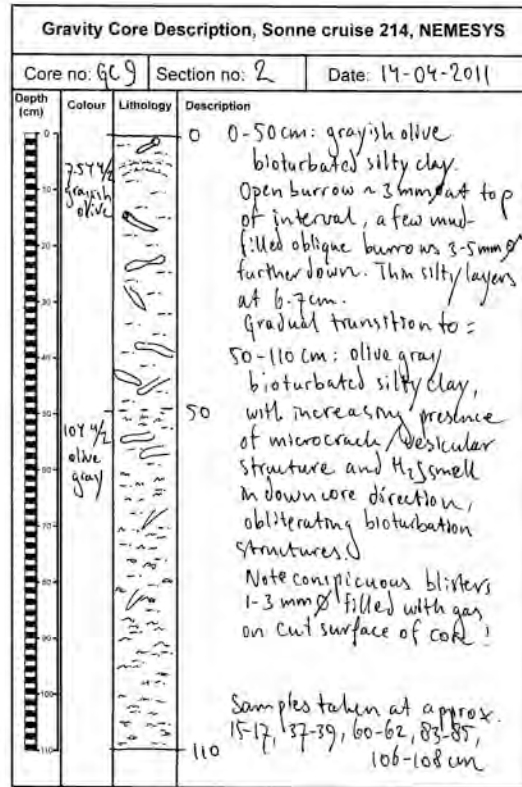 Gravity Core Description, Sonne cruise 214, NEMESYS
Core no: GC9 Section no: 2 Date: 14-04-2011
Depth (cm) Colour Lithology Description
0
10
20
30
40
50
60
70
80
90
100
110
7.5Y 4/2
grayish
olive
10Y 4/2
olive
gray
0
50
110
0-50cm: grayish olive
bioturbated silty clay.
Open burrow ~3mmø at top
of interval, a few mud-
filled oblique burrows 3-5mmø
further down. Thin silty layers
at 6-7cm.
Gradual transition to:
50-110cm: olive gray
bioturbated silty clay,
with increasing presence
of microcrack/vesicular
structure and H2S smell
in downcore direction,
obliterating bioturbation
structures.
Note conspicuous blisters
1-3 mmø filled with gas
on cut surface of core!
Samples taken at approx.
15-17, 37-39, 60-62, 83-85,
106-108 cm